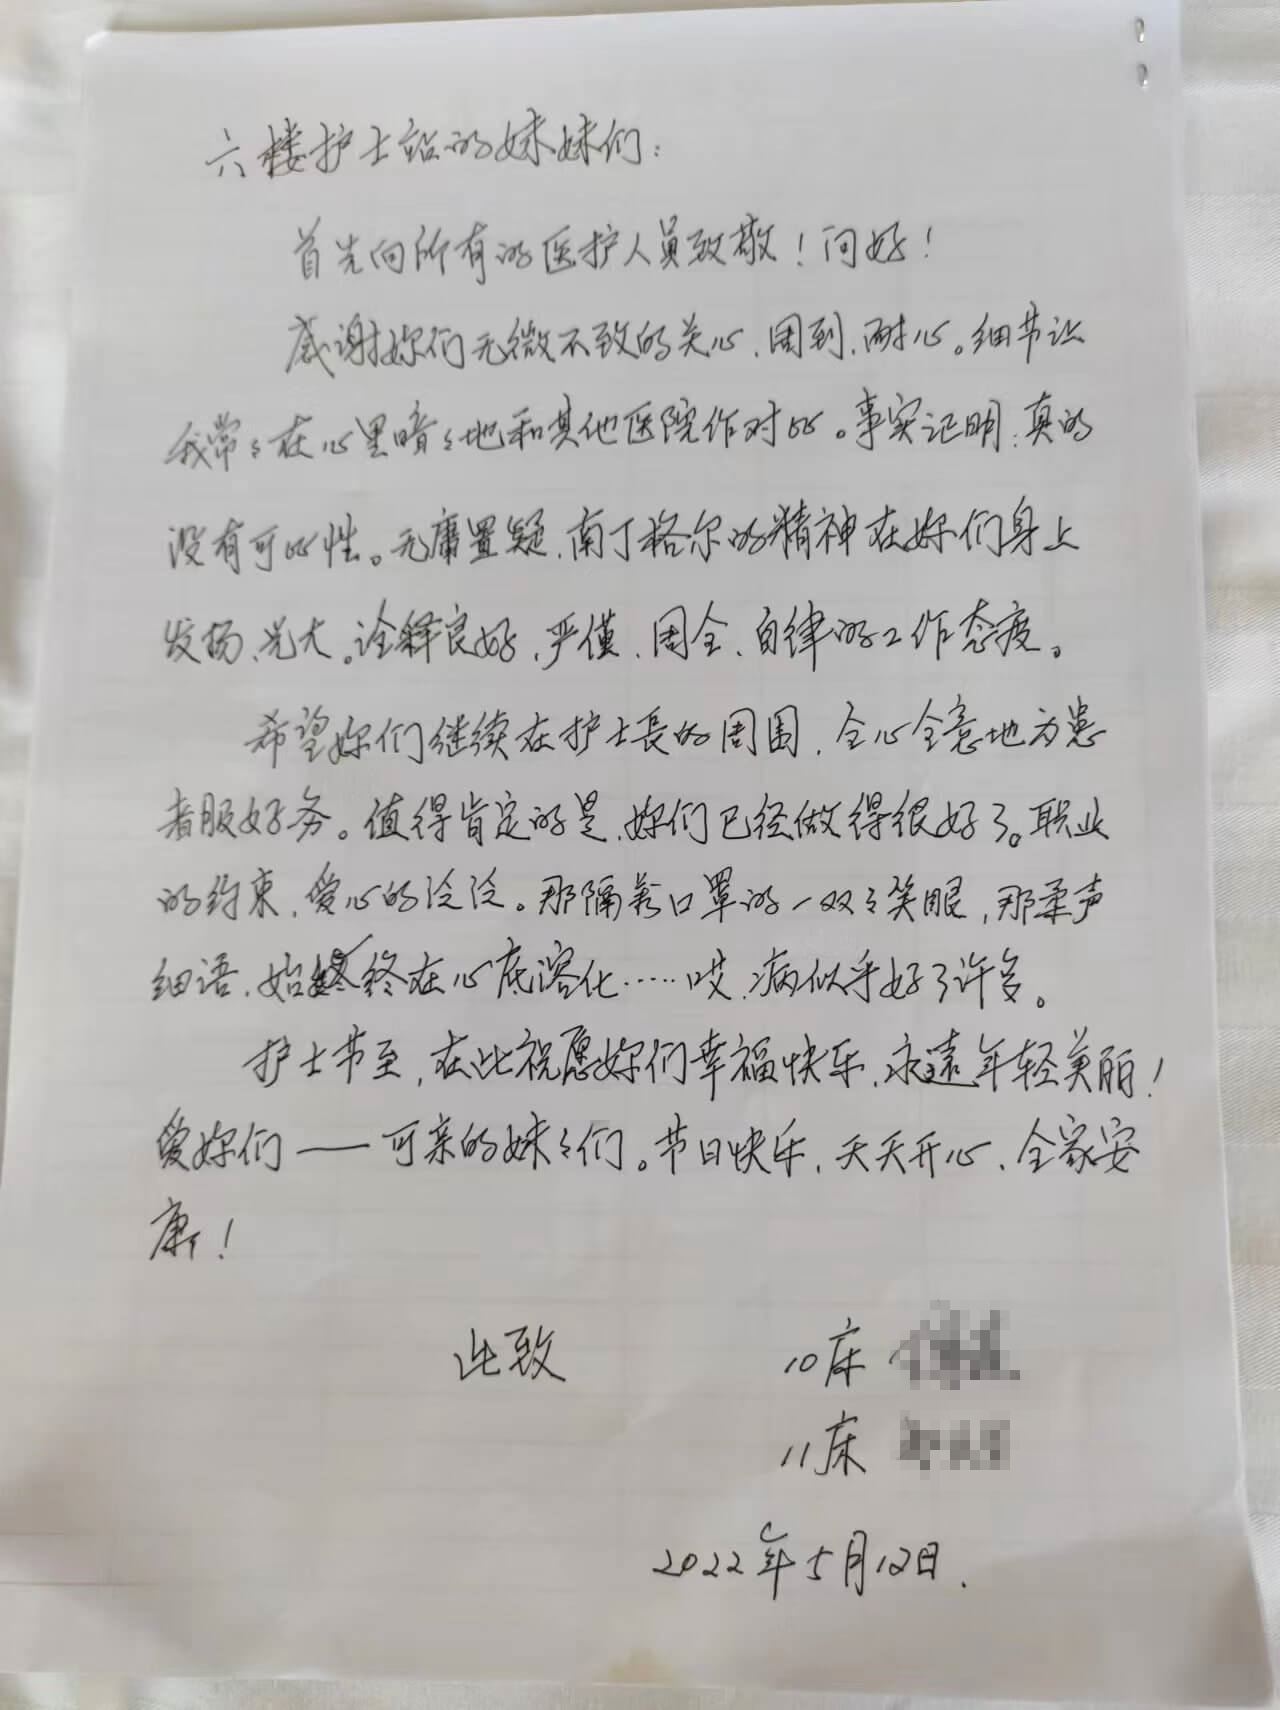 六楼护士站的妹妹们：
首先向所有的医护人员致敬！问好！
感谢妳们无微不致的关心、周到、耐心。细节让
我常々在心里暗々地和其他医院作对比。事实证明：真的
没有可比性。无庸置疑，南丁格尔的精神在妳们身上
发扬、光大。诠释良好、严僅、周全、自律的工作态度。
希望妳们继续在护士長的周围，全心全意地为患
者服好务。值得肯定的是，妳们已经做得很好了。职业
的约束，爱心的泛泛。那隔着口罩的一双々笑眼，那柔声
细语，始终在心底溶化……哎，病似乎好了许多。
护士节至，在此祝愿妳们幸福快乐，永远年轻美丽！
爱妳们——可亲的妹々们。节日快乐，天天开心，全家安
康！
此致 10床
11床
2022年5月12日.